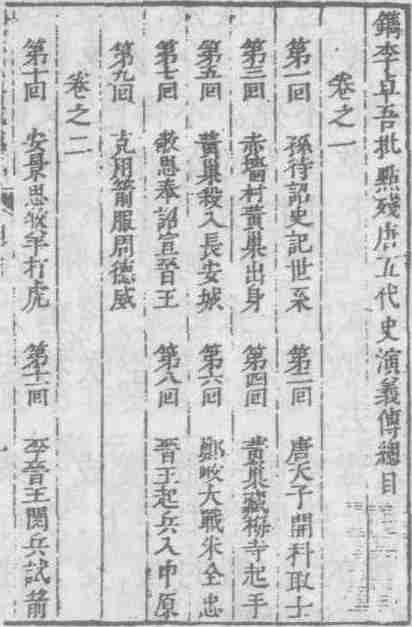 鐫李卓吾批點殘唐五代史演義傳總目
卷之一
第一回　孫待詔史記世系　第二回　唐天子開科取士
第三回　赤墻村黃巢出身　第四回　黃巢藏梅寺起手
第五回　黃巢殺入長安城　第六回　鄭畋大戰朱全忠
第七回　敬思奉詔宣晉王　第八回　晉王起兵入中原
第九回　克用箭服周德威
卷之二
第十回　安景思牧羊打虎　第十一回　李晉王閱兵試箭